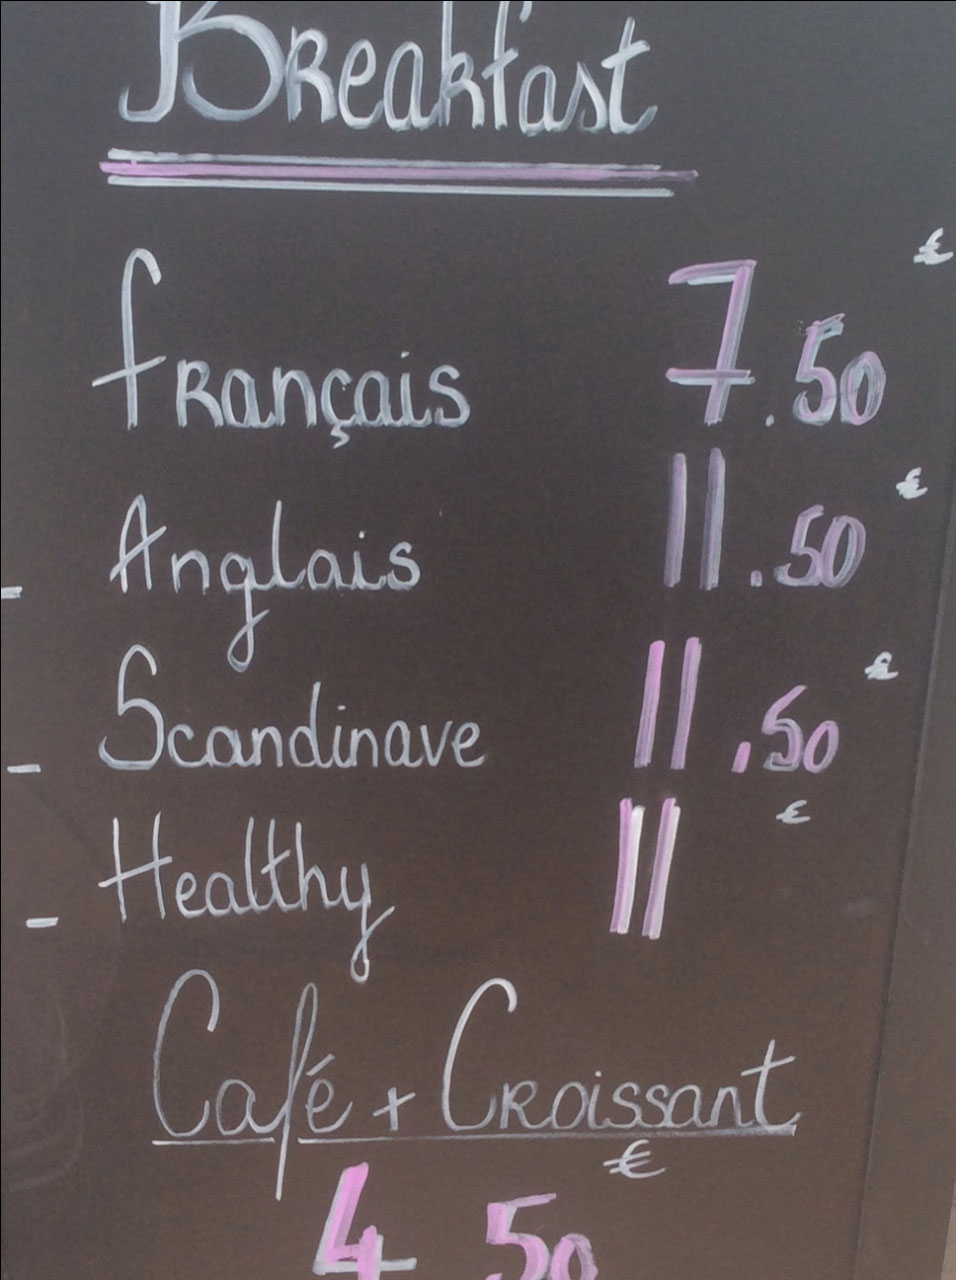 Breakfast
Français 7.50 €
- Anglais 11.50 €
- Scandinave 11.50 €
- Healthy 11 €
Café + Croissant
4 50 €